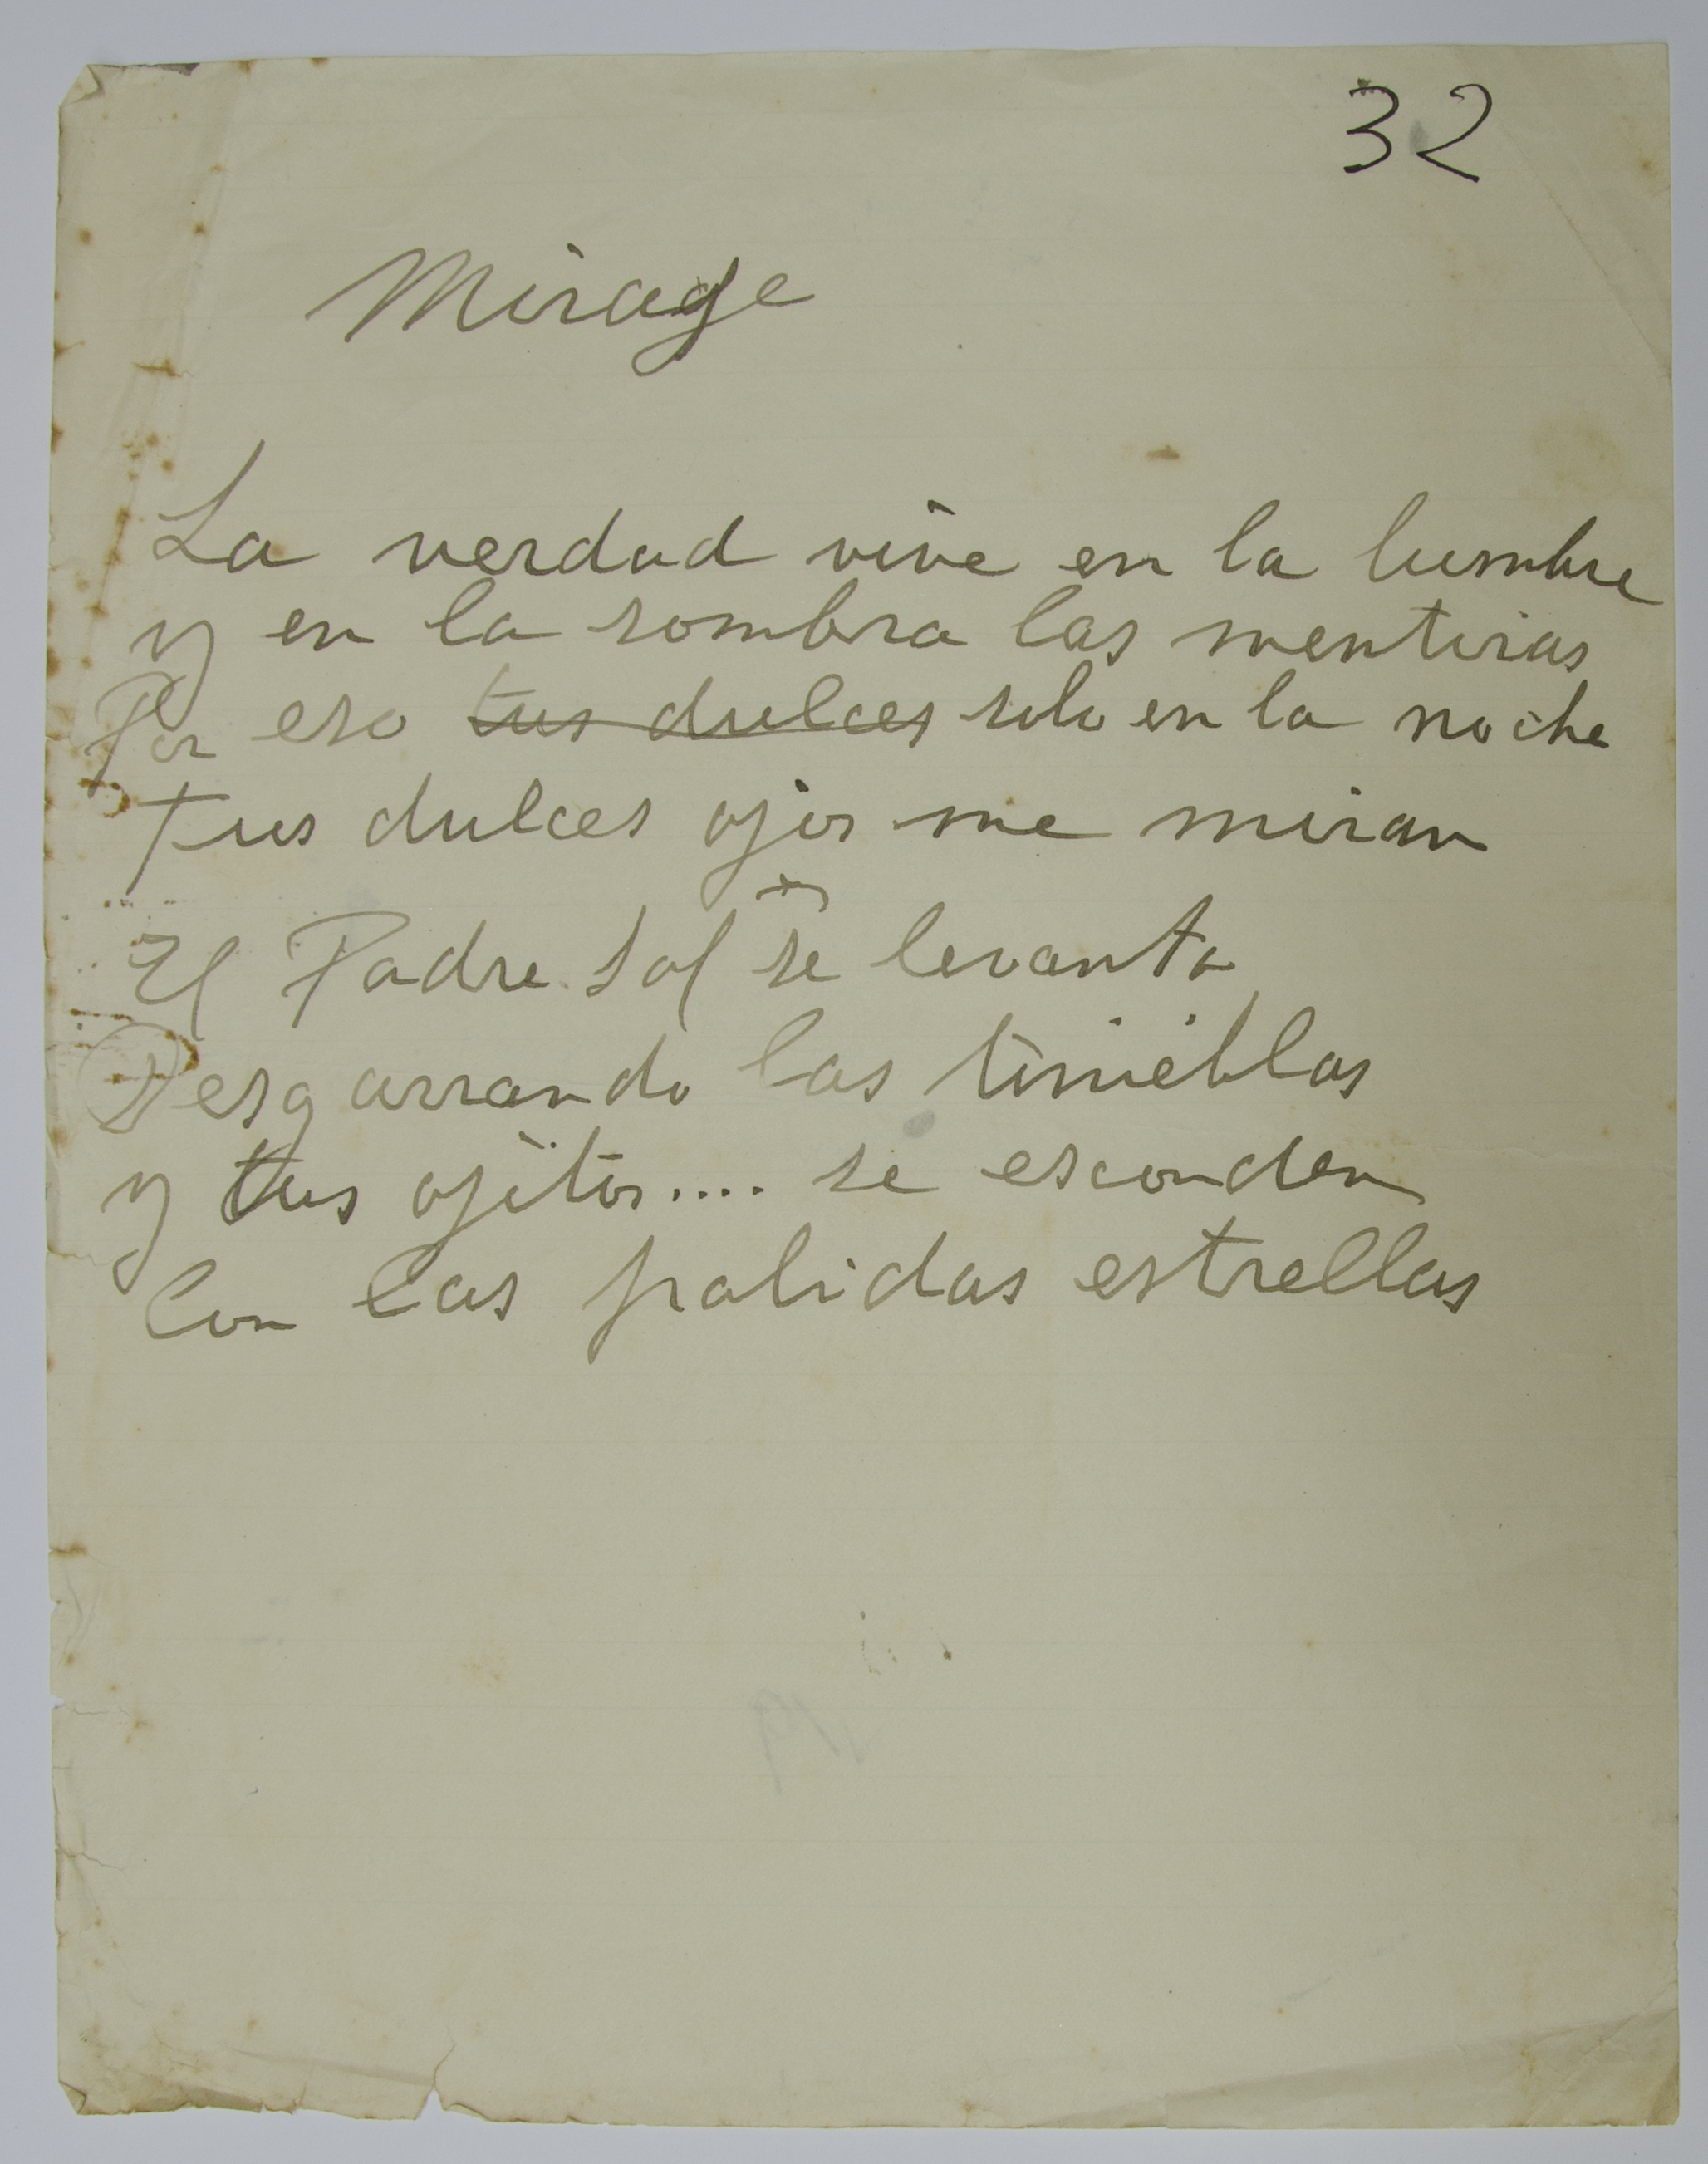 32
Mirage
La verdad vive en la lumbre
y en la sombra las mentiras
Por eso tus dulces solo en la noche
Tus dulces ojos me miran
El Padre Sol se levanta
Desgarrando las tinieblas
y tus ojitos.... se esconden
Con las palidas estrellas